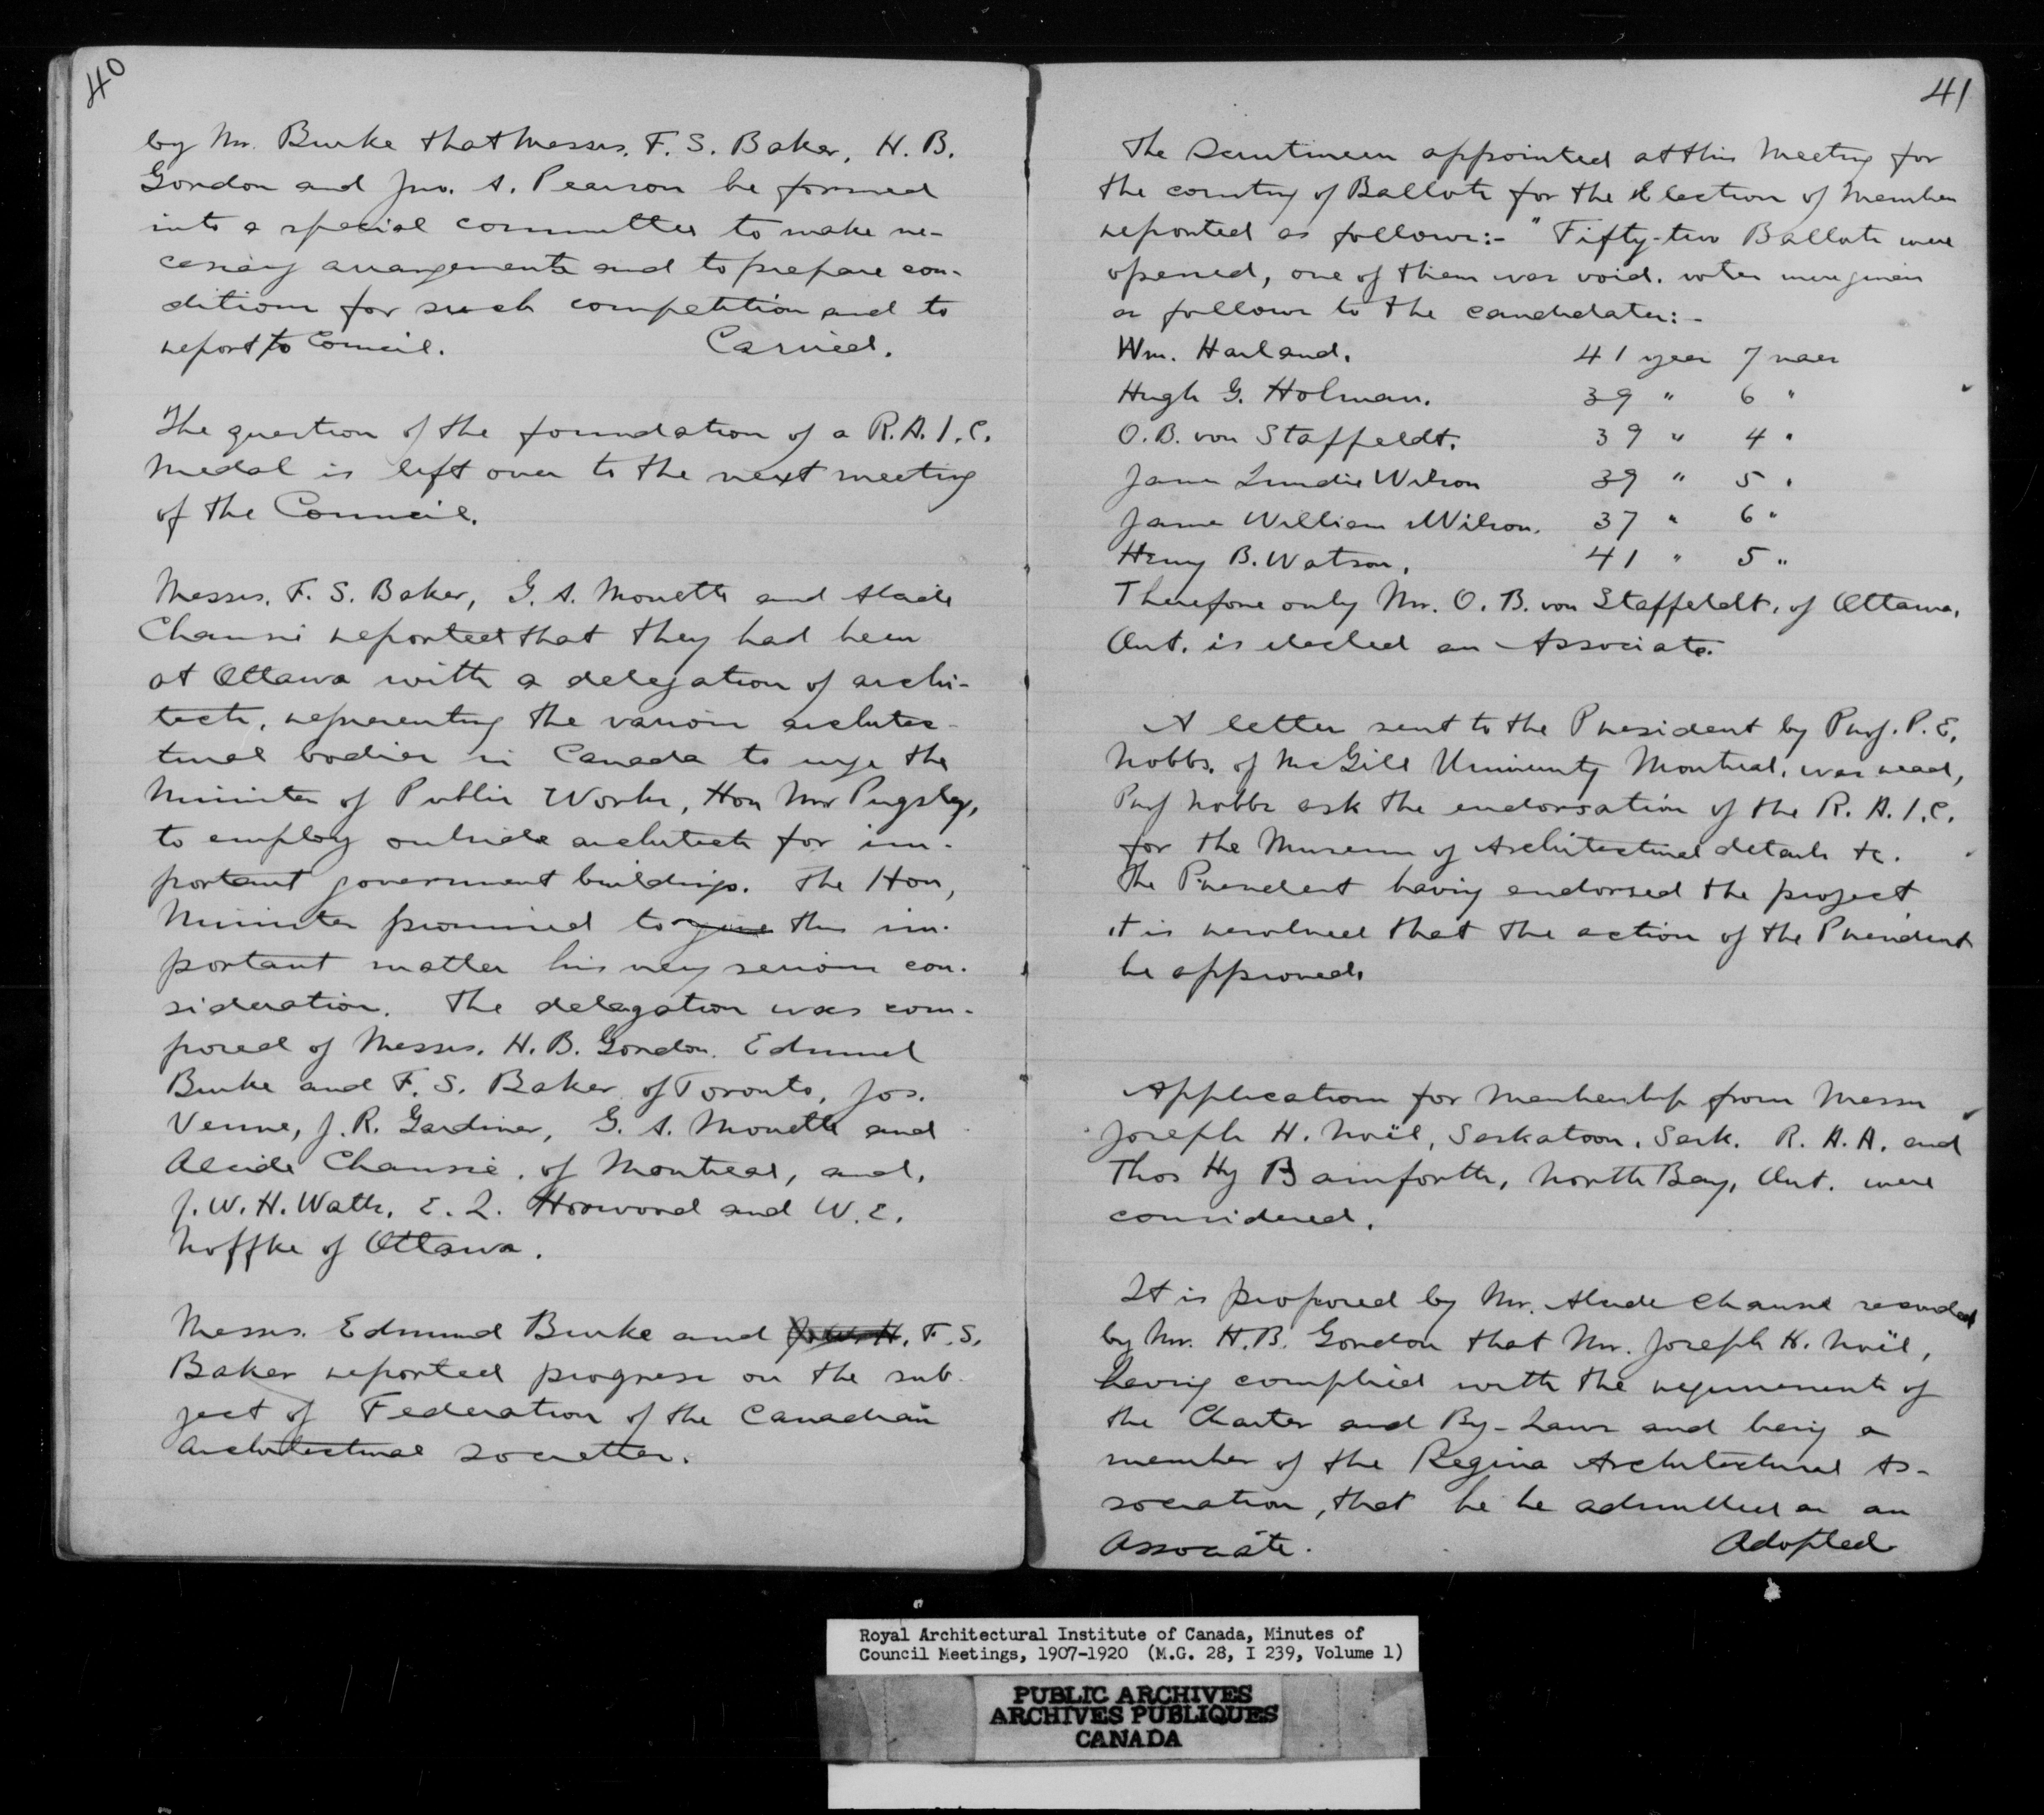 40
by Mr. Burke that Messrs. F. S. Baker, H. B.
Gordon and Jno. A. Pearson be formed
into a special committee to make ne-
cessary arrangements and to prepare con-
ditions for such competition and to
report to Council. Carried.
The question of the foundation of a R.A.I.C.
Medal is left over to the next meeting
of the Council.
Messrs. F. S. Baker, G. A. Monette and Alcide
Chaussé reported that they had been
at Ottawa with a delegation of archi-
tects, representing the various architec-
tural bodies in Canada to urge the
Minister of Public Works, Hon Mr Pugsley,
to employ outside architects for im-
portant government buildings. The Hon,
Minister promised to give this im-
portant matter his very serious con-
sideration. The delegation was com-
posed of Messrs. H. B. Gordon. Edmund
Burke and F. S. Baker of Toronto, Jos.
Venne, J. R. Gardiner, G. A. Monette and
Alcide Chaussé, of Montreal, and,
J. W. H. Watts, E. L. Horwood and W. E.
Noffke of Ottawa.
Messrs. Edmund Burke and F. S.
Baker reported progress on the sub-
ject of Federation of the Canadian
Architectural Societies.
41
The Scrutineers appointed at this Meeting for
the counting of Ballots for the Election of Members
reported as follows:- "Fifty-two Ballots were
opened, one of them was void. votes were given
as follows to the candidates:-
Wm. Harland. 41 yeas 7 naes
Hugh G. Holman. 39 " 6 "
O. B. von Staffeldt. 39 " 4 "
James Lundie Wilson 39 " 5 "
James William Wilson. 37 " 6 "
Henry B. Watson, 41 " 5 "
Therefore only Mr. O. B. von Staffeldt, of Ottawa,
Ont. is elected an Associate.
A letter sent to the President by Prof. P. E.
Nobbs, of McGill University Montreal, was read,
Prof Nobbs ask the endorsation of the R. A. I. C.
for the Museum of Architectural details &c.
The President having endorsed the project
it is resolved that the action of the President
be approved.
Applications for Membership from Messrs
Joseph H. Noël, Saskatoon, Sask. R. A. A. and
Thos Hy Bamforth, North Bay, Ont. were
considered.
It is proposed by Mr. Alcide Chaussé seconded
by Mr. H. B. Gordon that Mr. Joseph H. Noël,
having complied with the requirements of
the Charter and By-Laws and being a
member of the Regina Architectural As-
sociation, that he be admitted as an
Associate. Adopted
Royal Architectural Institute of Canada, Minutes of
Council Meetings, 1907-1920 (M.G. 28, I 239, Volume 1)
PUBLIC ARCHIVES
ARCHIVES PUBLIQUES
CANADA